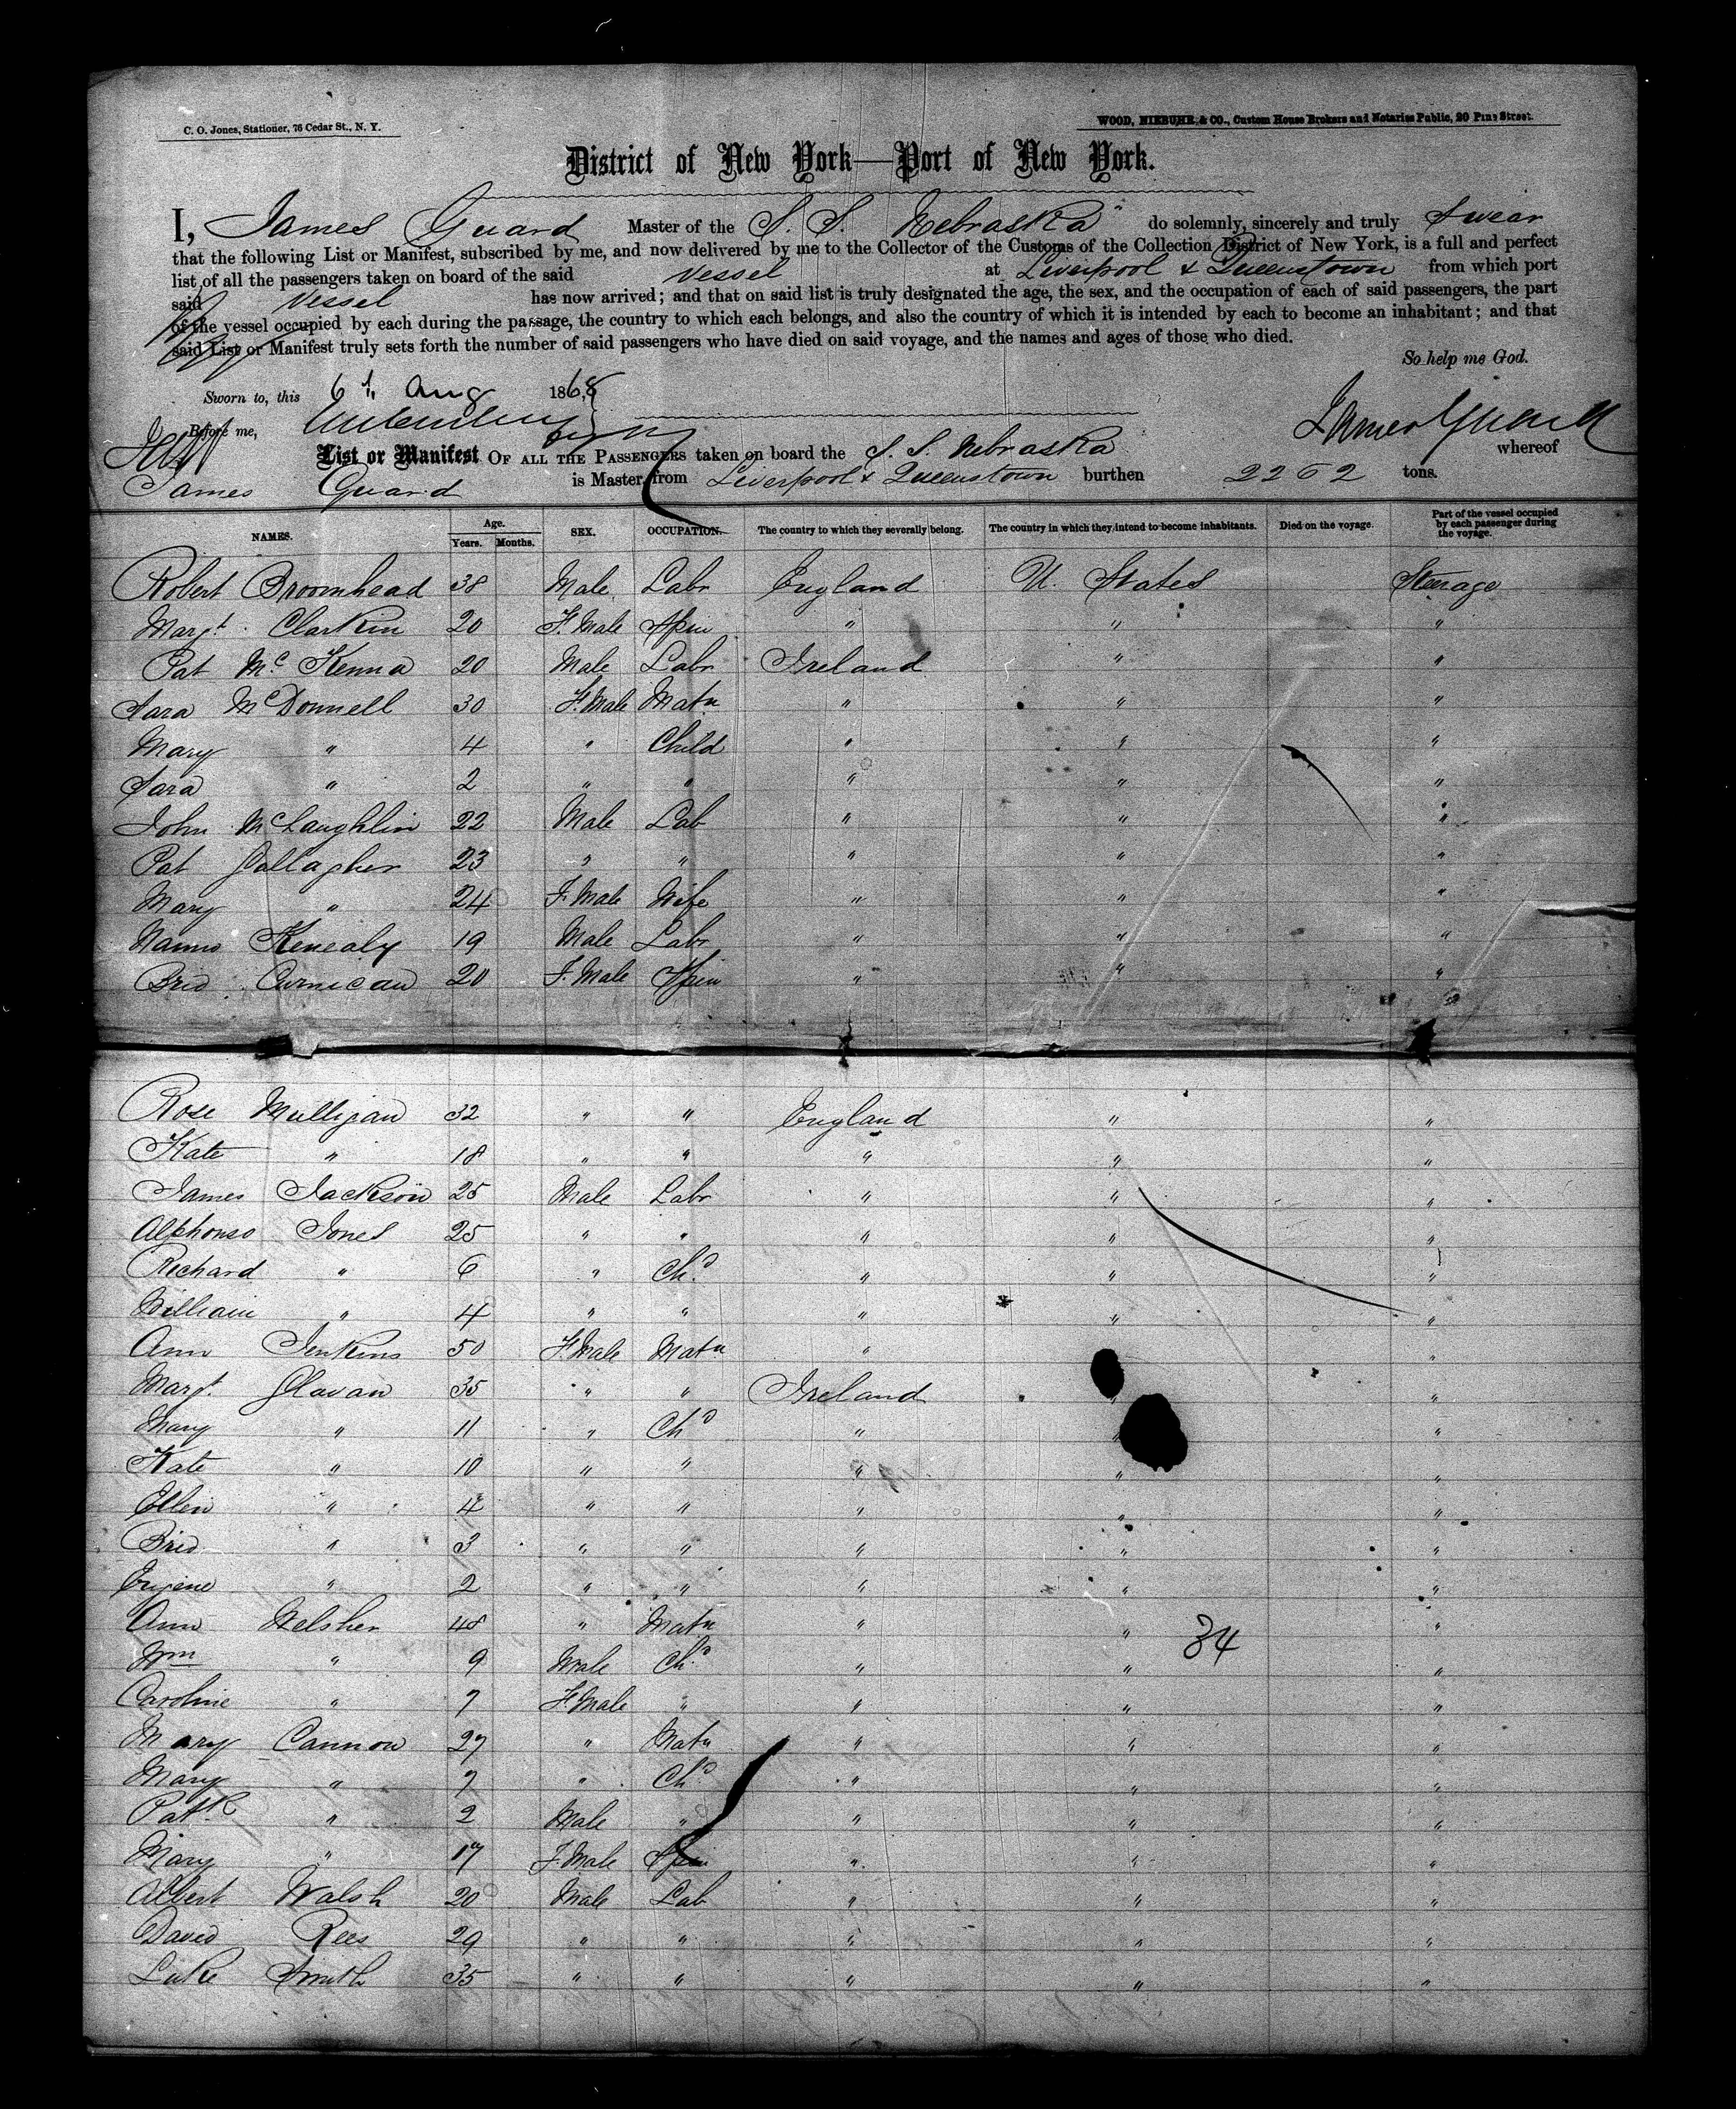 C. O. Jones, Stationer, 76 Cedar St., N. Y.
WOOD, NIEBUHR & CO., Custom House Brokers and Notaries Public, 20 Pine Street.
District of New York—Port of New York.
I, James Guard Master of the S. S. Nebraska do solemnly, sincerely and truly swear
that the following List or Manifest, subscribed by me, and now delivered by me to the Collector of the Customs of the Collection District of New York, is a full and perfect
list of all the passengers taken on board of the said vessel at Liverpool & Queenstown from which port
said vessel has now arrived; and that on said list is truly designated the age, the sex, and the occupation of each of said passengers, the part
of the vessel occupied by each during the passage, the country to which each belongs, and also the country of which it is intended by each to become an inhabitant; and that
said List or Manifest truly sets forth the number of said passengers who have died on said voyage, and the names and ages of those who died.
So help me God.
Sworn to, this 6th Aug 1868
Before me,
James Guard
List or Manifest OF ALL THE PASSENGERS taken on board the S. S. Nebraska whereof
James Guard is Master, from Liverpool & Queenstown burthen 2262 tons.
NAMES. Age. Years. Months. SEX. OCCUPATION. The country to which they severally belong. The country in which they intend to become inhabitants. Died on the voyage. Part of the vessel occupied by each passenger during the voyage.
Robert Broomhead 38 Male Labr England U. States Steerage
Margt Clarkin 20 F. Male Spin " " "
Pat Mc Kenna 20 Male Labr Ireland " "
Sara McDonnell 30 F. Male Matn " " "
Mary " 4 " Child " " "
Sara " 2 " " " " "
John McLaughlin 22 Male Lab " " "
Pat Gallagher 23 " " " " "
Mary " 24 F. Male Wife " " "
Kenealy 19 Male Labr " " "
Brid Curnican 20 F. Male Spin " " "
Rose Mulligan 32 " " England " "
Kate " 18 " " " " "
James Jackson 25 Male Labr " " "
Alphonso Jones 25 " " " " "
Richard " 6 " Chd " " "
William " 4 " " " " "
Ann Jenkins 50 F. Male Matn " " "
Margt Glavan 35 " " Ireland " "
Mary " 11 " Chd " " "
Kate " 10 " " " " "
Ellen " 4 " " " " "
Brid " 3 " " " " "
Eugene " 2 " " " " "
Ann Welsher 48 " Matn " " "
34
Wm " 9 Male Chd " " "
Caroline " 7 F. Male " " " "
Mary Cannon 27 " Matn " " "
Mary " 7 " Chd " " "
Patk " 2 Male " " " "
Mary " 17 F. Male Spin " " "
Albert Walsh 20 Male Lab " " "
David Rees 29 " " " " "
Luke Smith 35 " " " " "